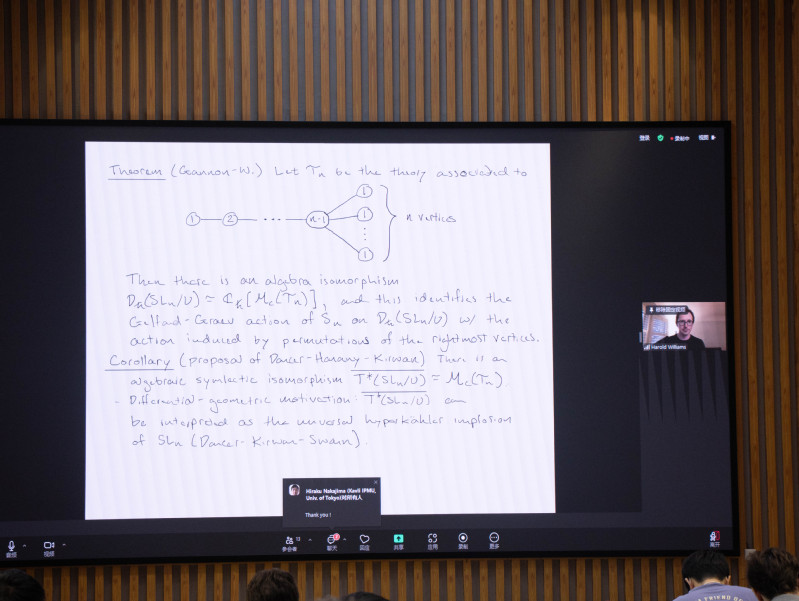 登录 录制中 视图
Theorem (Gannon-W.) Let Tn be the theory associated to
1 2 ... n-1 1 1 ⋮ 1 } n vertices
Then there is an algebra isomorphism
Dħ(SLn/U) ≃ ℂħ[Mc(Tn)], and this identifies the
Gelfand-Graev action of Sn on Dħ(SLn/U) w/ the
action induced by permutations of the rightmost vertices.
Corollary (proposal of Dancer-Hanany-Kirwan) There is an
algebraic symplectic isomorphism T*(SLn/U) ≃ Mc(Tn).
- Differential-geometric motivation: T*(SLn/U) can
be interpreted as the universal hyperkähler implosion
of SLn (Dancer-Kirwan-Swann).
Harold Williams
Hiraku Nakajima (Kavli IPMU,
Univ. of Tokyo)对所有人
Thank you !
音频 视频 参会者 13 聊天 回应 共享 应用 录制 更多 离开
FRIEND DO